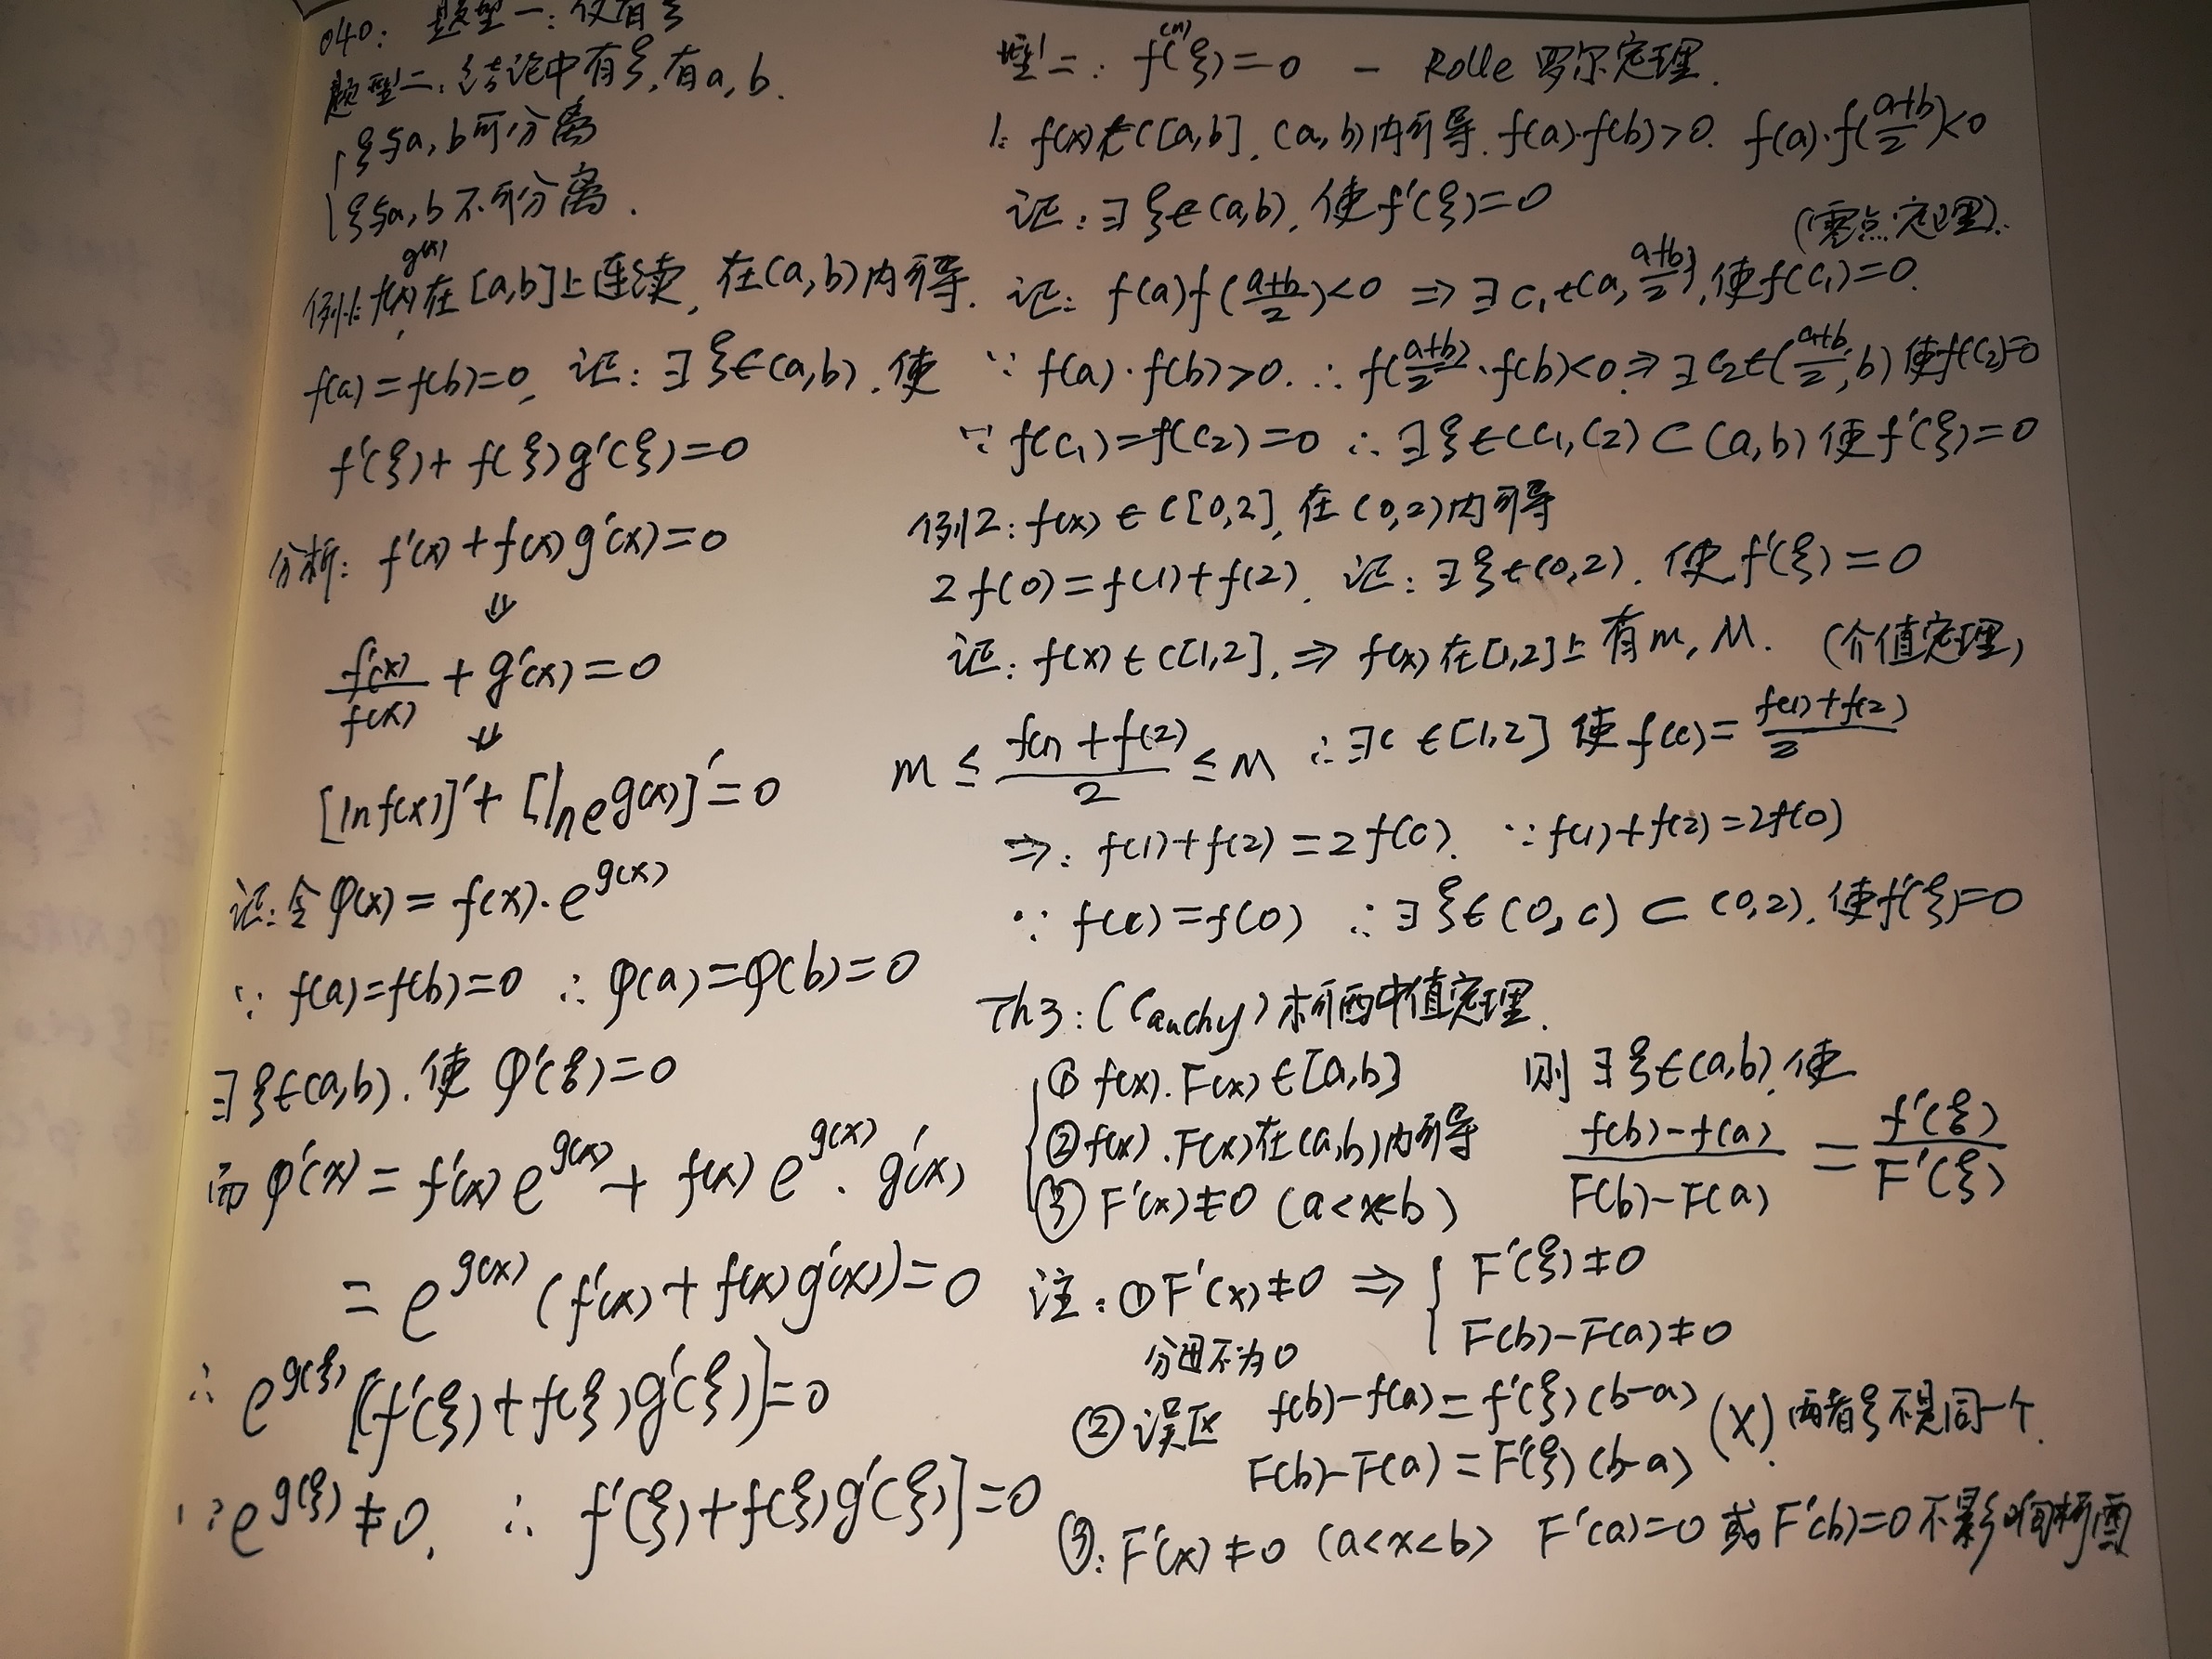 040: 题型一: 仅有ξ
题型二: 结论中有ξ, 有a, b.
{ξ与a, b可分离
ξ与a, b不可分离.
例1: f(x), g(x)在[a,b]上连续, 在(a,b)内可导.
f(a)=f(b)=0, 证: ∃ξ∈(a,b), 使
f'(ξ)+f(ξ)g'(ξ)=0
分析: f'(x)+f(x)g'(x)=0
⇓
f'(x)/f(x) + g'(x)=0
⇓
[ln f(x)]'+[ln e^g(x)]'=0
证: 令φ(x)=f(x)·e^g(x)
∵ f(a)=f(b)=0 ∴ φ(a)=φ(b)=0
∃ξ∈(a,b), 使φ'(ξ)=0
而φ'(x)=f'(x)e^g(x)+f(x)e^g(x)·g'(x)
=e^g(x)(f'(x)+f(x)g'(x))=0
∴ e^g(ξ)[f'(ξ)+f(ξ)g'(ξ)]=0
∵ e^g(ξ)≠0, ∴ f'(ξ)+f(ξ)g'(ξ)]=0
型二: f^(n)(ξ)=0 — Rolle 罗尔定理.
1: f(x)在C[a,b], (a,b)内可导, f(a)·f(b)>0. f(a)·f((a+b)/2)<0
证: ∃ξ∈(a,b), 使f'(ξ)=0
(零点定理).
证: f(a)f((a+b)/2)<0 ⇒ ∃c₁∈(a,(a+b)/2), 使f(c₁)=0.
∵ f(a)·f(b)>0. ∴ f((a+b)/2)·f(b)<0 ⇒ ∃c₂∈((a+b)/2,b) 使f(c₂)=0
∵ f(c₁)=f(c₂)=0 ∴ ∃ξ∈(c₁,c₂)⊂(a,b) 使f'(ξ)=0
例2: f(x)∈C[0,2], 在(0,2)内可导
2f(0)=f(1)+f(2). 证: ∃ξ∈(0,2), 使f'(ξ)=0
证: f(x)∈C[1,2], ⇒ f(x)在[1,2]上有m, M. (介值定理)
m ≤ (f(1)+f(2))/2 ≤ M ∴ ∃c∈[1,2] 使f(c)=(f(1)+f(2))/2
⇒: f(1)+f(2)=2f(c). ∵ f(1)+f(2)=2f(0)
∵ f(c)=f(0) ∴ ∃ξ∈(0,c)⊂(0,2), 使f'(ξ)=0
Th3: (Cauchy) 柯西中值定理.
{① f(x). F(x)∈[a,b] 则∃ξ∈(a,b), 使
② f(x). F(x)在(a,b)内可导 (f(b)-f(a))/(F(b)-F(a)) = f'(ξ)/F'(ξ)
③ F'(x)≠0 (a<x<b)
注: ① F'(x)≠0 ⇒ {F'(ξ)≠0
F(b)-F(a)≠0
分母不为0
② 误区 f(b)-f(a)=f'(ξ)(b-a) (X) 两者ξ不是同一个.
F(b)-F(a)=F'(ξ)(b-a)
③: F'(x)≠0 (a<x<b) F'(a)=0 或F'(b)=0不影响柯西